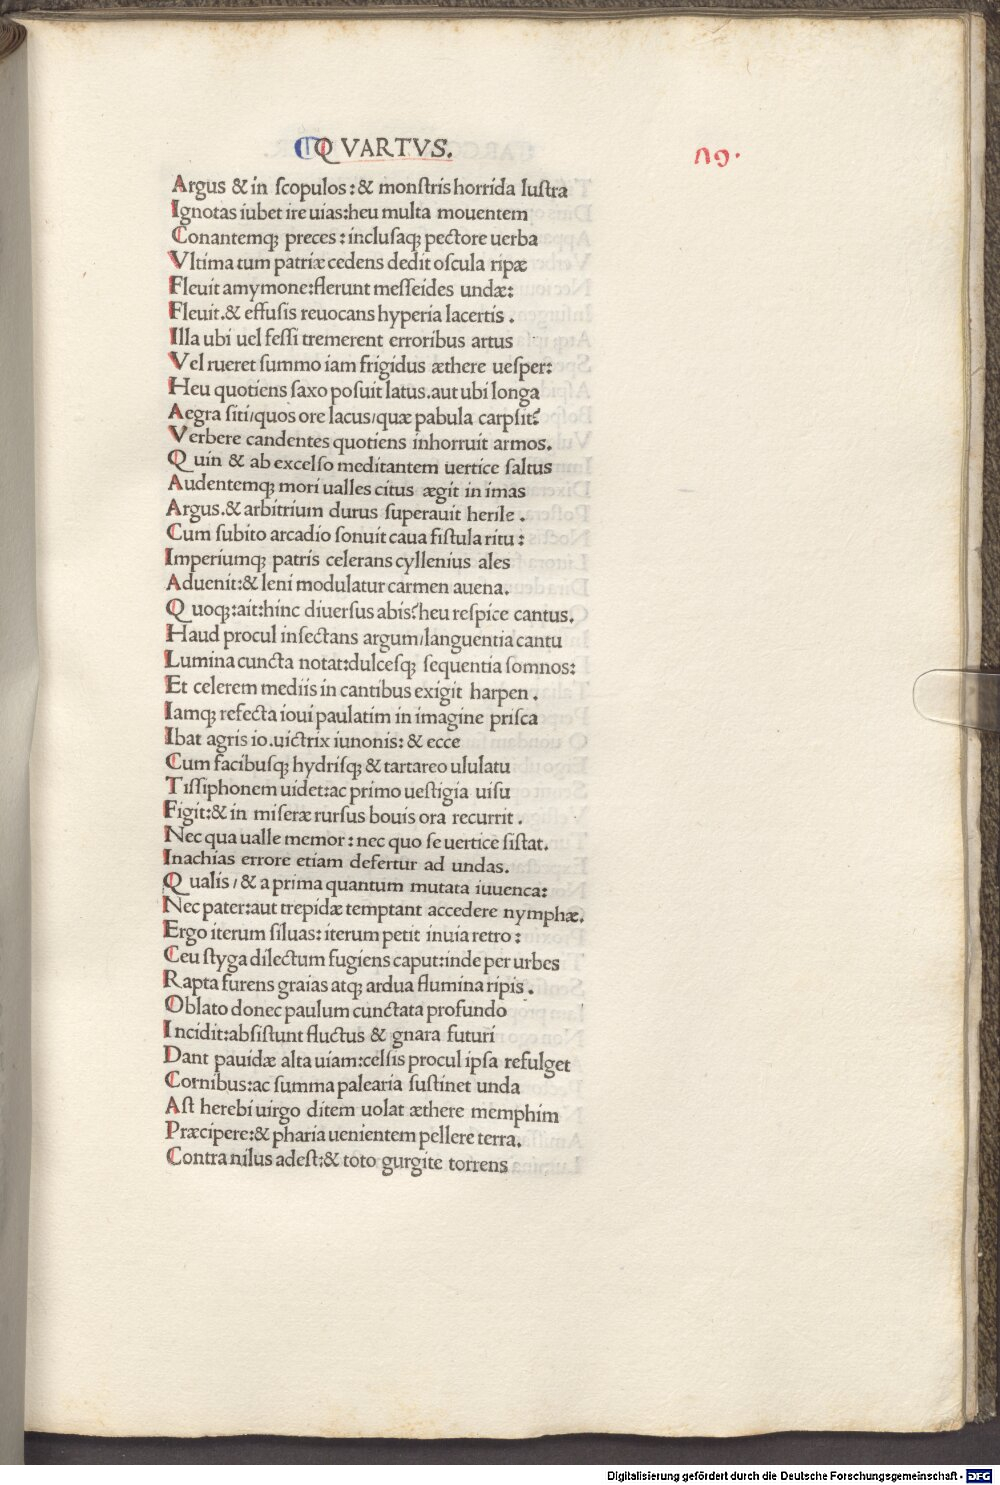 QVARTVS.
Argus & in scopulos: & monstris horrida lustra
Ignotas iubet ire uias: heu multa mouentem
Conantemq; preces: inclusaq; pectore uerba
Vltima tum patriæ cedens dedit oscula ripæ
Fleuit amymone: flerunt messeides undæ:
Fleuit. & effusis reuocans hyperia lacertis.
Illa ubi uel fessi tremerent erroribus artus
Vel rueret summo iam frigidus æthere uesper:
Heu quotiens saxo posuit latus. aut ubi longa
Aegra siti/quos ore lacus/quæ pabula carpsit?
Verbere candentes quotiens inhorruit armos.
Quin & ab excelso meditantem uertice saltus
Audentemq; mori ualles citus ægit in imas
Argus. & arbitrium durus superauit herile.
Cum subito arcadio sonuit caua fistula ritu:
Imperiumq; patris celerans cyllenius ales
Aduenit: & leni modulatur carmen auena.
Quoq: ait: hinc diuersus abis? heu respice cantus.
Haud procul insectans argum/languentia cantu
Lumina cuncta notat: dulcesq; sequentia somnos:
Et celerem mediis in cantibus exigit harpen.
Iamq; refecta ioui paulatim in imagine prisca
Ibat agris io. uictrix iunonis: & ecce
Cum facibusq; hydrisq; & tartareo ululatu
Tissiphonem uidet: ac primo uestigia uisu
Figit: & in miseræ rursus bouis ora recurrit.
Nec qua ualle memor: nec quo se uertice sistat.
Inachias errore etiam defertur ad undas.
Qualis/ & a prima quantum mutata iuuenca:
Nec pater: aut trepidæ temptant accedere nymphæ.
Ergo iterum siluas: iterum petit inuia retro:
Ceu styga dilectum fugiens caput: inde per urbes
Rapta furens graias atq; ardua flumina ripis.
Oblato donec paulum cunctata profundo
Incidit: absistunt fluctus & gnara futuri
Dant pauidæ alta uiam: celsis procul ipsa refulget
Cornibus: ac summa palearia sustinet unda
Ast herebi uirgo ditem uolat æthere memphim
Præcipere: & pharia uenientem pellere terra.
Contra nilus adest: & toto gurgite torrens
Digitalisierung gefördert durch die Deutsche Forschungsgemeinschaft - DFG